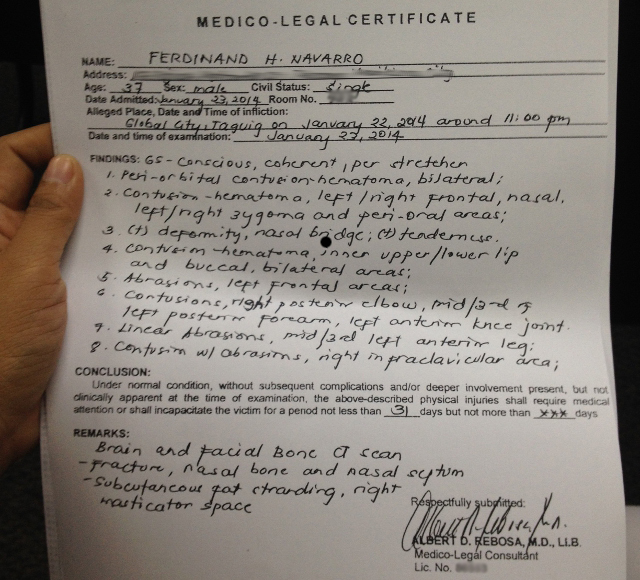 MEDICO-LEGAL CERTIFICATE
NAME: FERDINAND H. NAVARRO
Address:
Age: 37 Sex: male Civil Status: single
Date Admitted: January 23, 2014 Room No.
Alleged Place, Date and Time of infliction:
Global City, Taguig on January 22, 2014 around 11:00 pm
Date and time of examination: January 23, 2014
FINDINGS: GS-Conscious, coherent, per stretcher
1. Peri-orbital contusion-hematoma, bilateral;
2. Contusion-hematoma, left/right frontal, nasal,
left/right zygoma and peri-oral areas;
3. (+) deformity, nasal bridge; (+) tenderness.
4. Contusion-hematoma, inner upper/lower lip
and buccal, bilateral areas;
5. Abrasions, left frontal areas;
6. Contusions, right posterior elbow, mid/3rd of
left posterior forearm, left anterior knee joint.
7. Linear Abrasions, mid/3rd left anterior leg;
8. Contusion w/ abrasions, right infraclavicular area;
CONCLUSION:
Under normal condition, without subsequent complications and/or deeper involvement present, but not
clinically apparent at the time of examination, the above-described physical injuries shall require medical
attention or shall incapacitate the victim for a period not less than 31 days but not more than *** days
REMARKS:
Brain and Facial Bone CT scan
-Fracture, nasal bone and nasal septum
-Subcutaneous fat stranding, right
masticator space
Respectfully submitted:
ALBERT D. REBOSA, M.D., Ll.B.
Medico-Legal Consultant
Lic. No.